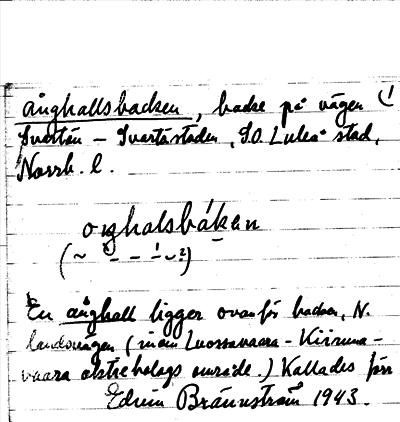 ånghallsbacken, backe på vägen
Svartön - Svartöstaden, S.O. Luleå stad,
Norrb. l.
oŋhalsbáken
En ånghall ligger ovanför backen, N.
landsvägen (inom Luossavaara - Kiiruna-
vaara aktiebolags område.) Kallades förr
Edvin Brännström 1943.